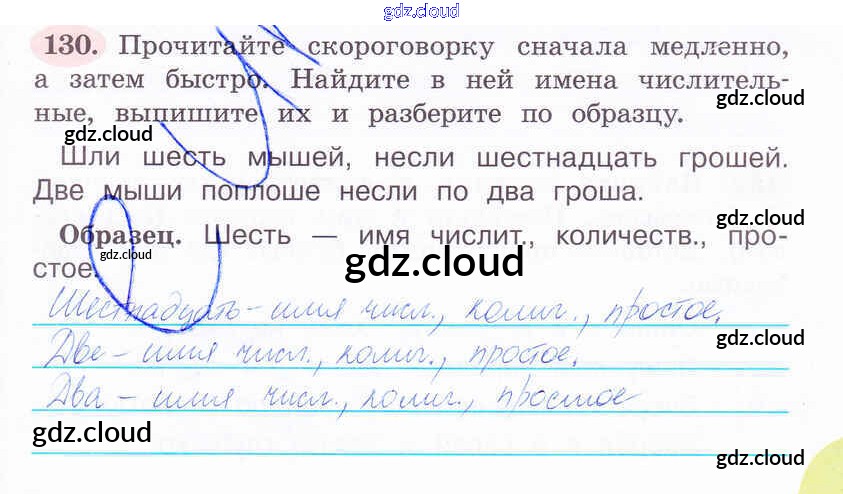 gdz.cloud
130. Прочитайте скороговорку сначала медленно,
а затем быстро. Найдите в ней имена числитель-
gdz.cloud
ные, выпишите их и разберите по образцу.
gdz.cloud
Шли шесть мышей, несли шестнадцать грошей.
Две мыши поплоше несли по два гроша.
gdz.cloud
Образец. Шесть — имя числит., количеств., про-
gdz.cloud
стое.
gdz.cloud
Шестнадцать – имя числ., колич., простое.
gdz.cloud
Две – имя числ., колич., простое.
Два – имя числ., колич., простое
gdz.cloud
gdz.cloud